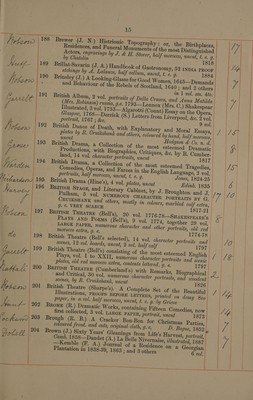 15
188 Brewer (J. N.) Histrionic Topography: or, the Birthplaces,
Residences, and Funeral Monuments of the most Distinguished
Actors, engravings by J. & H. Storer, half morocco, uncut, t. e. g.
by Chatelin 1818
189 Brillat-Savarin (J. A.) Handbook of Gastronomy, 52 INDIA PROOF
etchings by A. Lalauze, half vellum, uncut, t. e. g. 1884
190 Brinsley (J.) A Looking-Glasse for Good Women, 1645—Demands
and Behaviour of the Rebels of Scotland, 1640; and 2 others
in 1 vol. sm. 4to.
191 British Album, 2 vol. portraits of Della Crusca, and Anna Matilda
(Mrs. Robinson) russia, g.e. 1793—Lennox (Mrs. C.) Shakespear
Illustrated, 3 vol. 1753—Algarotti (Count) Essay on the Opera,
Glasgow, 1768—Derrick (S.) Letters from Liverpool, &c. 2 vol.
portrait, 1767; &c.
192 British Dance of Death, with Explanatory and Moral Essays,
plates by R. Cruikshank and others, coloured by hand, half morocco,
uncut Hodgson & Co. n. d.
193 British Drama, a Collection of the most esteemed Dramatic
Productions, with Biographies, Critiques, &c. by R. Cumberland,
14 vol. character portraits, uncut 1817
194 British Drama, a Collection of the most esteemed Tragedies,
Comedies, Operas, and Farces in the English Language, 2 vol.
portraits, half morocco, uncut, t. e. g. Jones, 1824-25
195 British Drama (Dicks's), 4 vol. plates, uncut 1853
196 BRITISH STAGE, and Literary Cabinet, by J. Broughton and J.
Pulham, 5 vol. NUMEROUS CHARACTER PORTRAITS BY G.
CRUIKSHANK and others, mostly in colours, marbled calf extra,
g. e. VERY SCARCE 1817-21
197 BRITISH THEATRE (Bell's), 20 vol. 1776-78—SHAKESPEARE'S
PLAYS AND POEMS (Bell's), 9 vol. 1774, together 29 vol.
LARGE PAPER, numerous character and other portraits, old red
morocco extra, g. e. 1774-78
198 British Theatre (Bell's selected), 14 vol. character portraits and
scenes, 12 vol. boards, uncut, 2 vol. calf 1797
199 British Theatre (Bell's) consisting of the most esteemed English
Plays, vol. I to XXII, numerous character portraits and scenic
plates, old red morocco extra, contents lettered, g. e. 1797
200 BRITISH THEATRE (Cumberland's) with Remarks, Biographical
and Critical, 30 vol. numerous character portraits, and woodcut
scenes, by R. Cruikshank, uncut 1826
201 British Theatre (Sharpe's). A Complete Set of the Beautiful
Illustrations, PROOFS BEFORE LETTERS, printed on stong 8vo.
paper, in a vol. half morocco, uncut, t. e. g. by Grieve
202 BROME (R.) Dramatic Works, containing Fifteen Comedies, now
first collected, 3 vol. LARGE PAPER, portrait, uncut 1873
203 Brough (R. B.) A Cracker Bon-Bon for Christmas Parties,
coloured front. and cuts, original cloth, g. e. D. Bogue, 1852
204 Brown (J.) Sixty Years' Gleanings from Life's Harvest, portrait,
Camb. 1858—Daudet (A.) La Belle Nivernaise, illustrated, 1887
—Kemble (F. A.) Journal of a Residence on a Georgian
Plantation in 1838-39, 1863; and 3 others 6 vol.